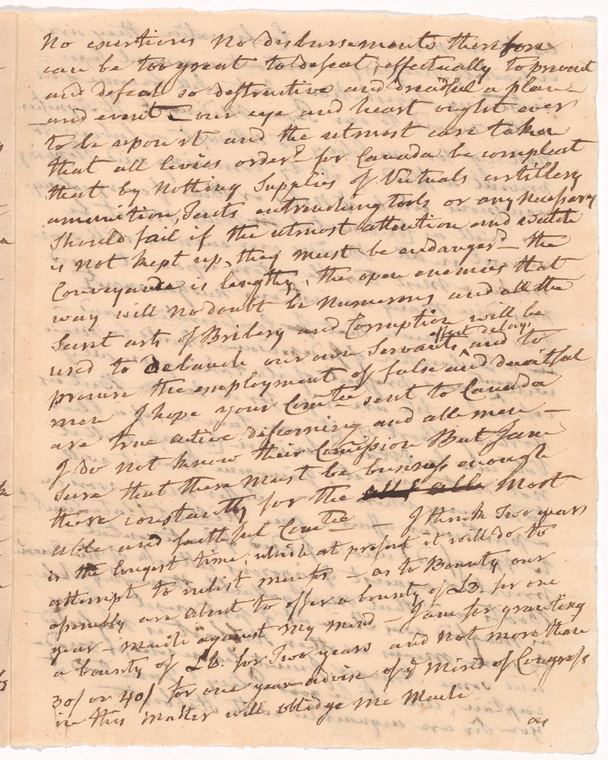 No exertions No disbursements therefore
can be too great to defeat, effectually to prevent
and defeat so destructive and dreadful a plan
and event – our eye and heart ought ever
to be upon it and the utmost care taken
that all levies order'd for Canada be compleat
that by Nothing Supplies of Victuals artillery
amunition, Tents entrenching tools or any necessary
should fail if the utmost attention and watch
is not kept up, they must be endanger'd – the
Conveyance is lengthy, the open enemies that
way will no doubt be Numerous and all the
Secret arts of Bribery and Corruption will be
used to Debauch our own Servants effect delay, and to
procure the employment of false and deceitful
men I hope your Comtee sent to Canada
are true active discerning and all men –
I do not know their Comission But I am
Sure that there must be business enough
there constantly for the Most
able and faithful Comtee – I think Two years
is the longest time, which at present it will do to
attempt to inlist men for – as to Bounty our
assembly are about to offer a bounty of £3 for one
year – much against my mind – I am for granting
a bounty of £6 for Two years and not more than
30/ or 40/ for one year advise of ye Mind of Congress
in this matter will obledge me Much
as